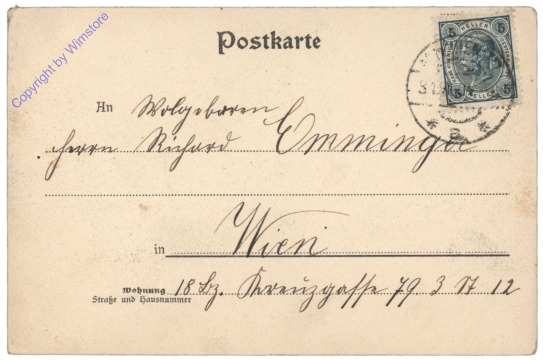 Copyright by Wimstore
Postkarte
5 HELLER 5
5 HELLER 5
An Wolgeboren
Herrn Richard Emminger
in Wien
Wohnung 18. Bz. Kreuzgasse 79 3 St 12
Straße und Hausnummer
* a *